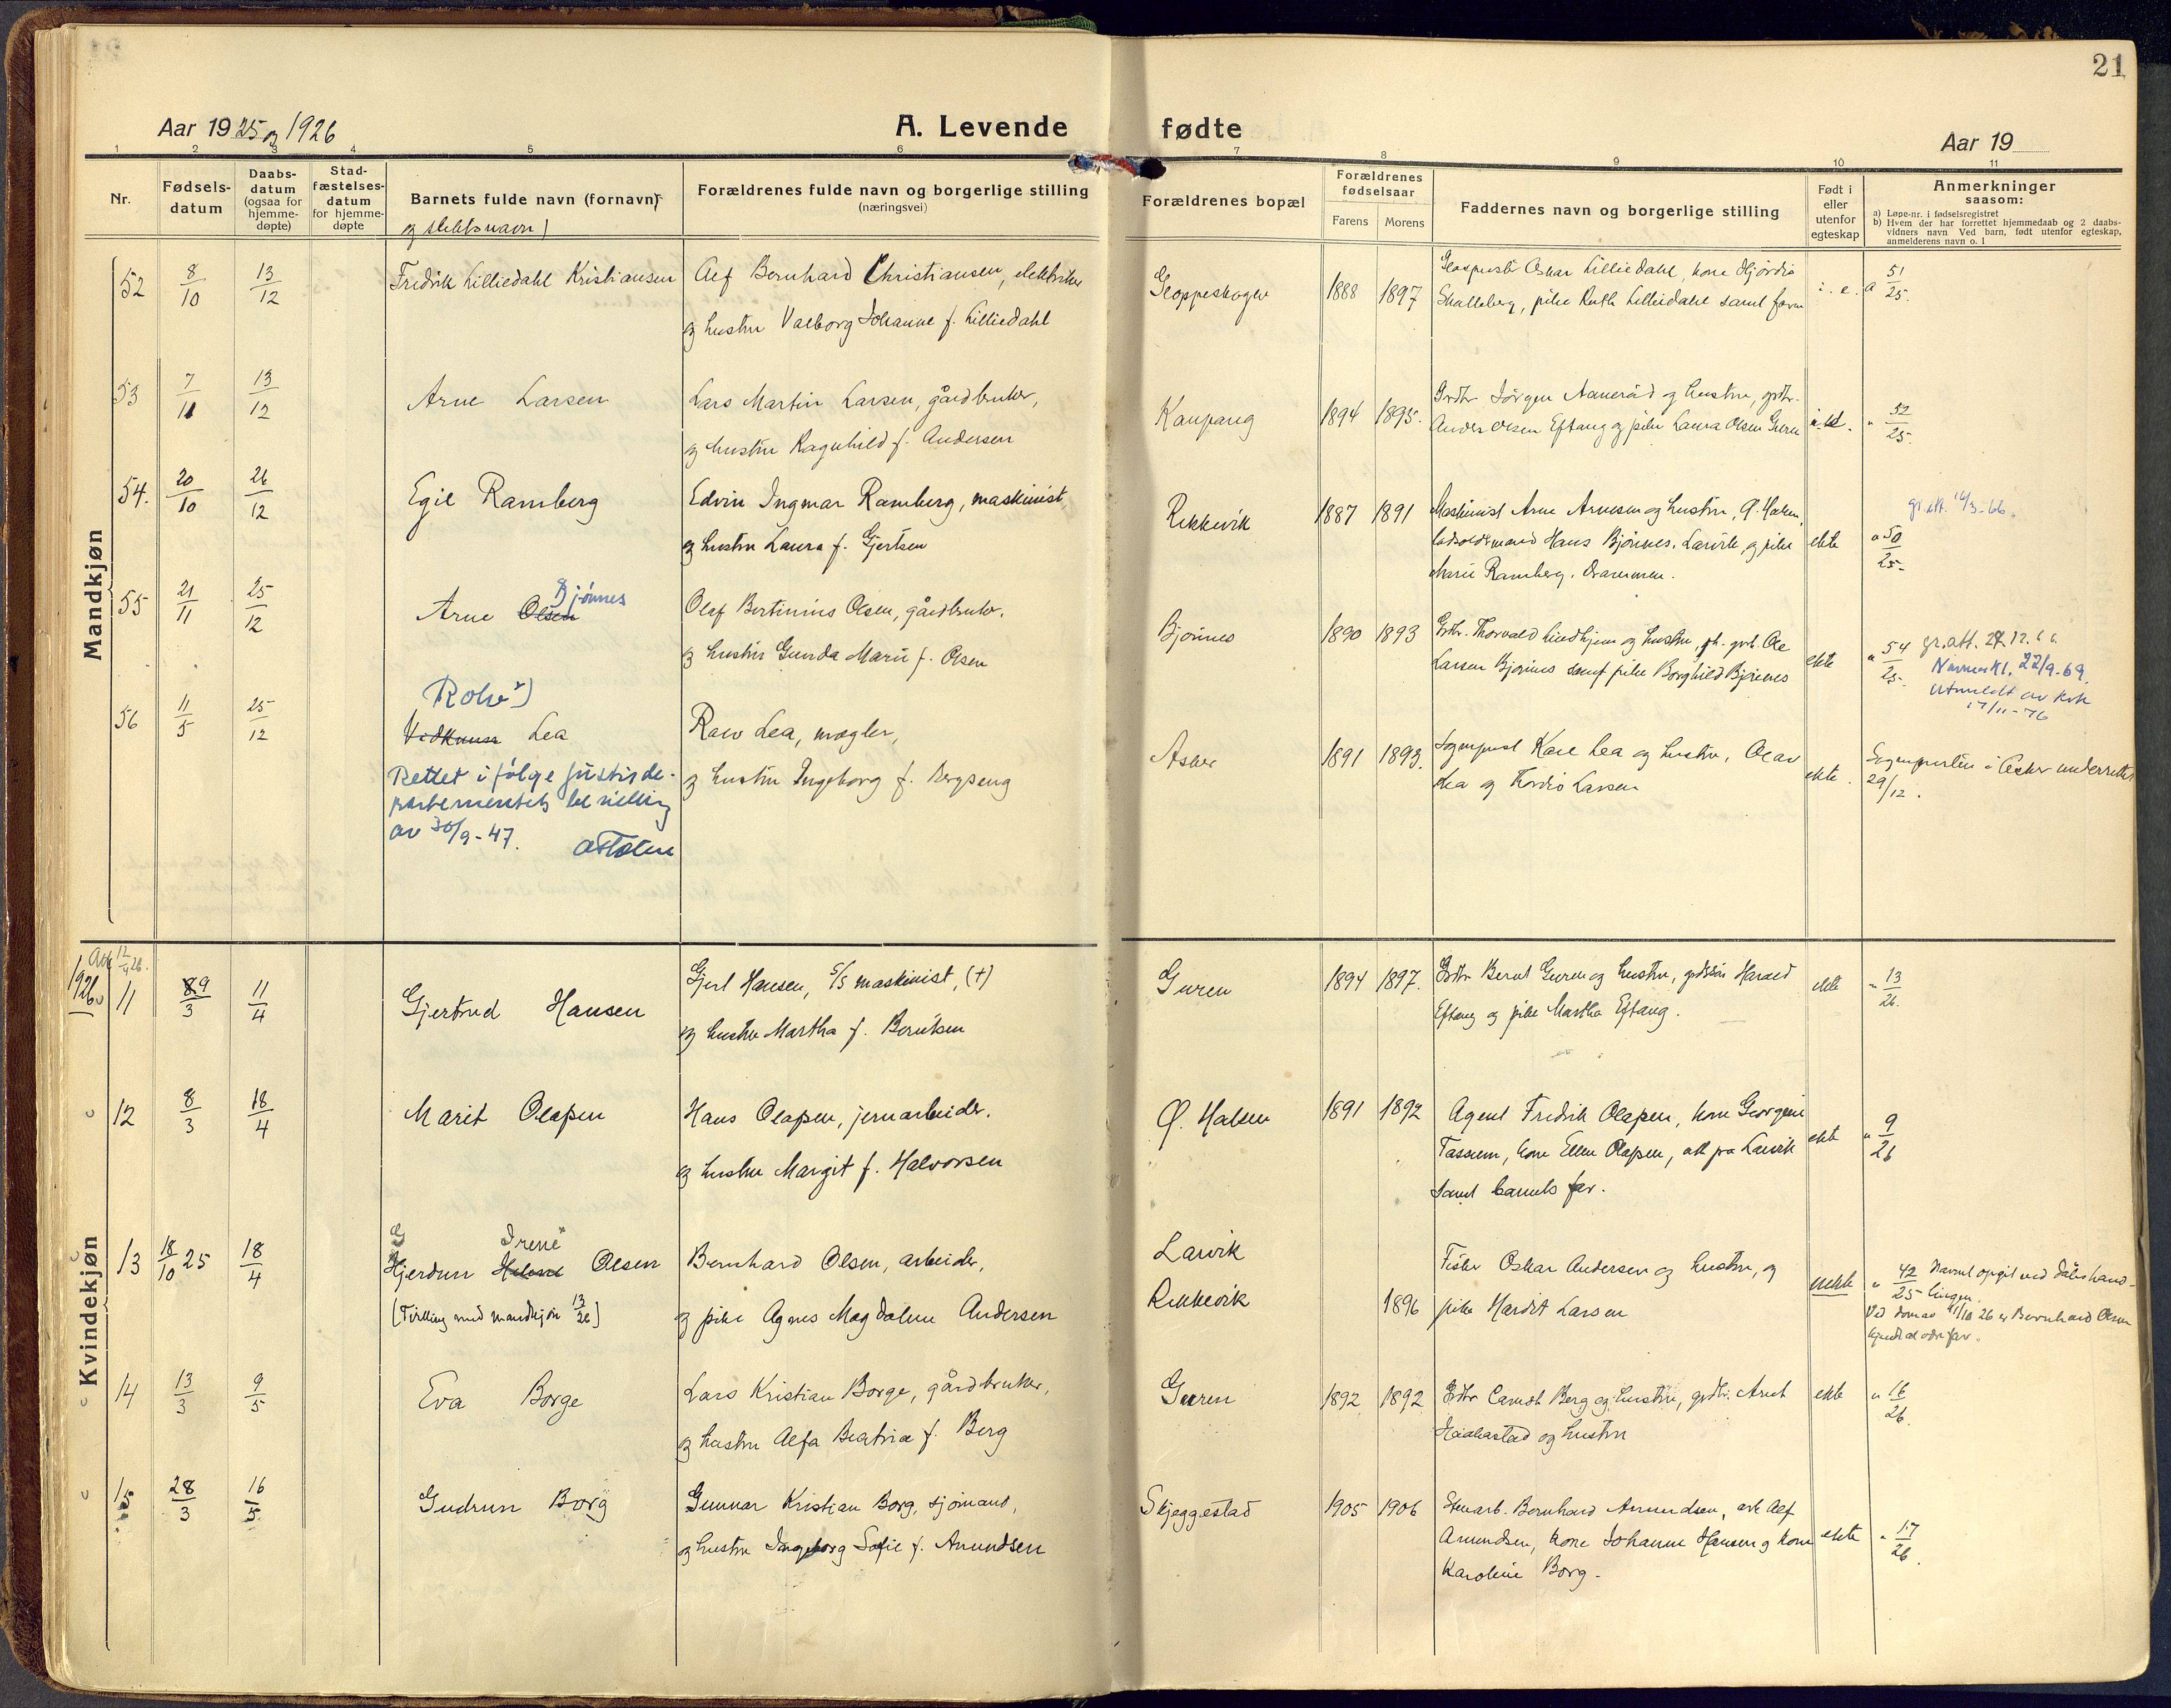 21
Aar 1925 og 1926
A. Levende fødte
Aar 19
1 2 3 4 5 6 7 8 9 10 11
Nr.
Fødselsdatum
Daabsdatum (ogsaa for hjemmedøpte)
Stadfæstelsesdatum for hjemmedøpte
Barnets fulde navn (fornavn)
og slektsnavn)
Forældrenes fulde navn og borgerlige stilling
(næringsvei)
Forældrenes bopæl
Forældrenes fødselsaar
Farens Morens
Faddernes navn og borgerlige stilling
Født i eller utenfor egteskap
Anmerkninger saasom:
a) Løpe-nr. i fødselsregistret
b) Hvem der har forrettet hjemmedaab og 2 daabsvidners navn Ved barn, født utenfor egteskap, anmelderens navn o. l
Mandkjøn
52 8/10 13/12 Fredrik Lilliedahl Kristiansen
Alf Bernhard Christiansen, elektriker
og hustru Valborg Johanne f. Lilliedahl
Gloppeskogen 1888 1897
Oskar Lilliedahl, kone Hjørdis
Skalleberg, pike Ruth Lilliedahl samt faren
i. e. a 51/25.
53 7/11 13/12 Arne Larsen
Lars Martin Larsen, gårdbruker,
og hustru Ragnhild f. Andersen
Kaupang 1894 1895.
Grdbr. Jørgen Aamerød og hustru, grdbr.
Anders Olsen Eftang og pike Laura Olsen Guren
" 52/25.
54. 20/10 26/12 Egil Ramberg
Edvin Ingmar Ramberg, maskinist,
og hustru Laura f. Gjertsen
Rekkevik 1887 1891
Maskinist Arne Arnesen og hustru, Ø. Halsen,
Hans Bjønnes, Larvik, og pike
Marie Ramberg, Drammen.
ekte " 50/25
gr.att. 14/3-66.
55 21/11 25/12 Arne Olsen Bjønnes
Olaf Bertinius Olsen, gårdbruker,
og hustru Gunda Marie f. Olsen
Bjønnes 1890 1893
Grdbr. Thorvald Lindhjem og hustru, Ole
Larsen Bjønnes samt pike Borghild Bjønnes
ekte " 54/25.
gr.att. 27.12.66.
Navnekl. 22/9-69.
Utmeldt av kirk
17/11-76
56 11/5 25/12 Rolv)
Vidkunn Lea
Rettet i følge Justisde-
partementets bevilling
av 30/9-47.
Ralv Lea, mægler,
og hustru Ingeborg f. Bergseng
Asker 1891 1893.
Sogneprest Kåre Lea og hustru, Olav
Lea og Thordis Larsen
ekte.
Sognepresten i Asker underrettet
29/12.
12/4 26.
1926
Kvindekjøn
11 8.9/3 11/4 Gjertrud Hansen
Gjert Hansen, S/S maskinist, (+)
og hustru Martha f. Berntsen
Guren 1894 1897.
Grdbr Bernt Guren og hustru, grdbr.søn Harald
Eftang og pike Martha Eftang.
ekte " 13/26.
12 8/3 18/4 Marit Olafsen
Hans Olafsen, jernarbeider,
og hustru Margit f. Halvorsen
Ø. Halsen 1891 1892
Agent Fredrik Olafsen, kone Georgine
Tassum, kone Ellen Olafsen, alle fra Larvik
samt barnets far.
ekte " 9/26
13 18/10 25 18/4 Gjerdrun Helene Irene Olsen
(Tvilling med mandkjøn 13/26)
Bernhard Olsen, arbeider,
og pike Agnes Magdalene Andersen
Larvik
Rekkevik 1896
Fisker Oskar Andersen og hustru, og
pike Hardit Larsen
uekte " 42/25 Navnet opgit ved dåbshand-
lingen.
Ved dom av 11/10 26 er Bernhard Olsen
kjendt at være far.
14 13/3 9/5 Eva Borge
Lars Kristian Borge, gårdbruker,
og hustru Alfa Beatrice f. Berg
Guren 1892 1892
Grdbr Berg og hustru, grdbr. Arnt
Haakestad og hustru
ekte " 16/26.
15 28/3 16/5 Gudrun Borg
Gunnar Kristian Borg, sjømand,
og hustru Ingeborg Sofie f. Amundsen
Skjeggestad 1905 1906
Stenarb. Bernhard Amundsen, arb Alf
Amundsen, kone Johanne Hansen og kone
Karoline Borg.
ekte " 17/26.